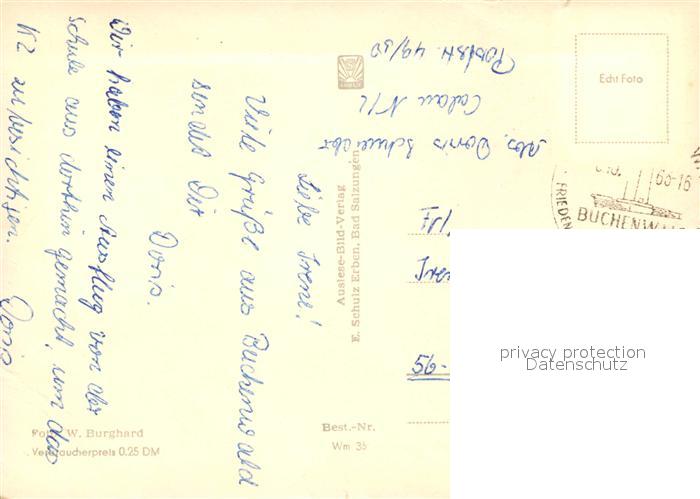 Liebe Irene!
Viele Grüße aus Buchenwald
sendet Dir
Doris.
Wir haben einen Ausflug von der
schule aus dorthin gemacht, um das
KZ zu besichtigen. Doris
Abs. Doris
Calau N/L
49/50
Echt Foto
66-16
FRIEDEN
BUCHENWA
Auslese-Bild-Verlag
E. Schulz Erben, Bad Salzungen
56-
Foto W. Burghard
Verbraucherpreis 0.25 DM
Best.-Nr.
Wm 35
privacy protection
Datenschutz